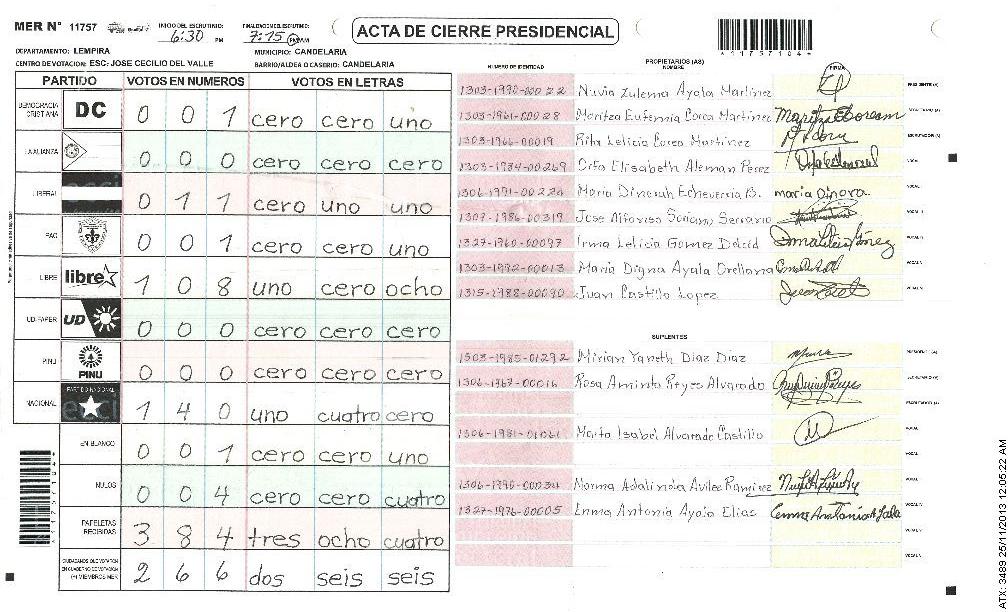 MER N° 11757 INICIO DEL ESCRUTINIO: 6:30 PM FINALIZACION DEL ESCRUTINIO: 7:15 PM AM
ACTA DE CIERRE PRESIDENCIAL
11757104
DEPARTAMENTO: LEMPIRA MUNICIPIO: CANDELARIA
CENTRO DE VOTACION: ESC: JOSE CECILIO DEL VALLE BARRIO/ALDEA O CASERIO: CANDELARIA
PARTIDO VOTOS EN NUMEROS VOTOS EN LETRAS
DEMOCRACIA CRISTIANA DC 0 0 1 cero cero uno
LA ALIANZA 0 0 0 cero cero cero
LIBERAL 0 1 1 cero uno uno
PAC 0 0 1 cero cero uno
LIBRE libre 1 0 8 uno cero ocho
UD-FAPER UD 0 0 0 cero cero cero
PINU PINU 0 0 0 cero cero cero
NACIONAL PARTIDO NACIONAL 1 4 0 uno cuatro cero
EN BLANCO 0 0 1 cero cero uno
NULOS 0 0 4 cero cero cuatro
PAPELETAS RECIBIDAS 3 8 4 tres ocho cuatro
CIUDADANOS QUE VOTARON EN CUADERNO DE VOTACION (+) MIEMBROS MER 2 6 6 dos seis seis
NUMERO DE IDENTIDAD PROPIETARIOS (AS) NOMBRE FIRMA
1303-1990-00022 Nuvia Zulema Ayala Martinez PRESIDENTE (A)
1303-1961-00028 Maritza Eufemia Corea Martinez SECRETARIO (A)
1303-1966-00019 Rita Leticia Corea Martinez ESCRUTADOR (A)
1303-1984-00269 Orfa Elisabeth Aleman Perez VOCAL
1306-1991-00224 Maria Dinorah Echeverria B. maria Dinora VOCAL
1307-1986-00319 Jose Alfonso Soriano Serrano VOCAL
1327-1960-00097 Irma Leticia Gomez Delcid VOCAL
1303-1992-00013 Maria Digna Ayala Orellana VOCAL
1315-1988-00090 Juan Castillo Lopez VOCAL
SUPLENTES
1503-1985-01292 Mirian Yaneth Diaz Diaz PRESIDENTE (A)
1306-1967-00016 Rosa Aminta Reyes Alvarado SECRETARIO (A)
ESCRUTADOR (A)
1306-1981-01061 Marta Isabel Alvarado Castillo VOCAL
VOCAL
1306-1990-00034 Norma Adalinda Aviles Ramirez VOCAL
1327-1976-00005 Enma Antonia Ayala Elias VOCAL
VOCAL
VOCAL
ATX: 3489 25/11/2013 12:05:22 AM